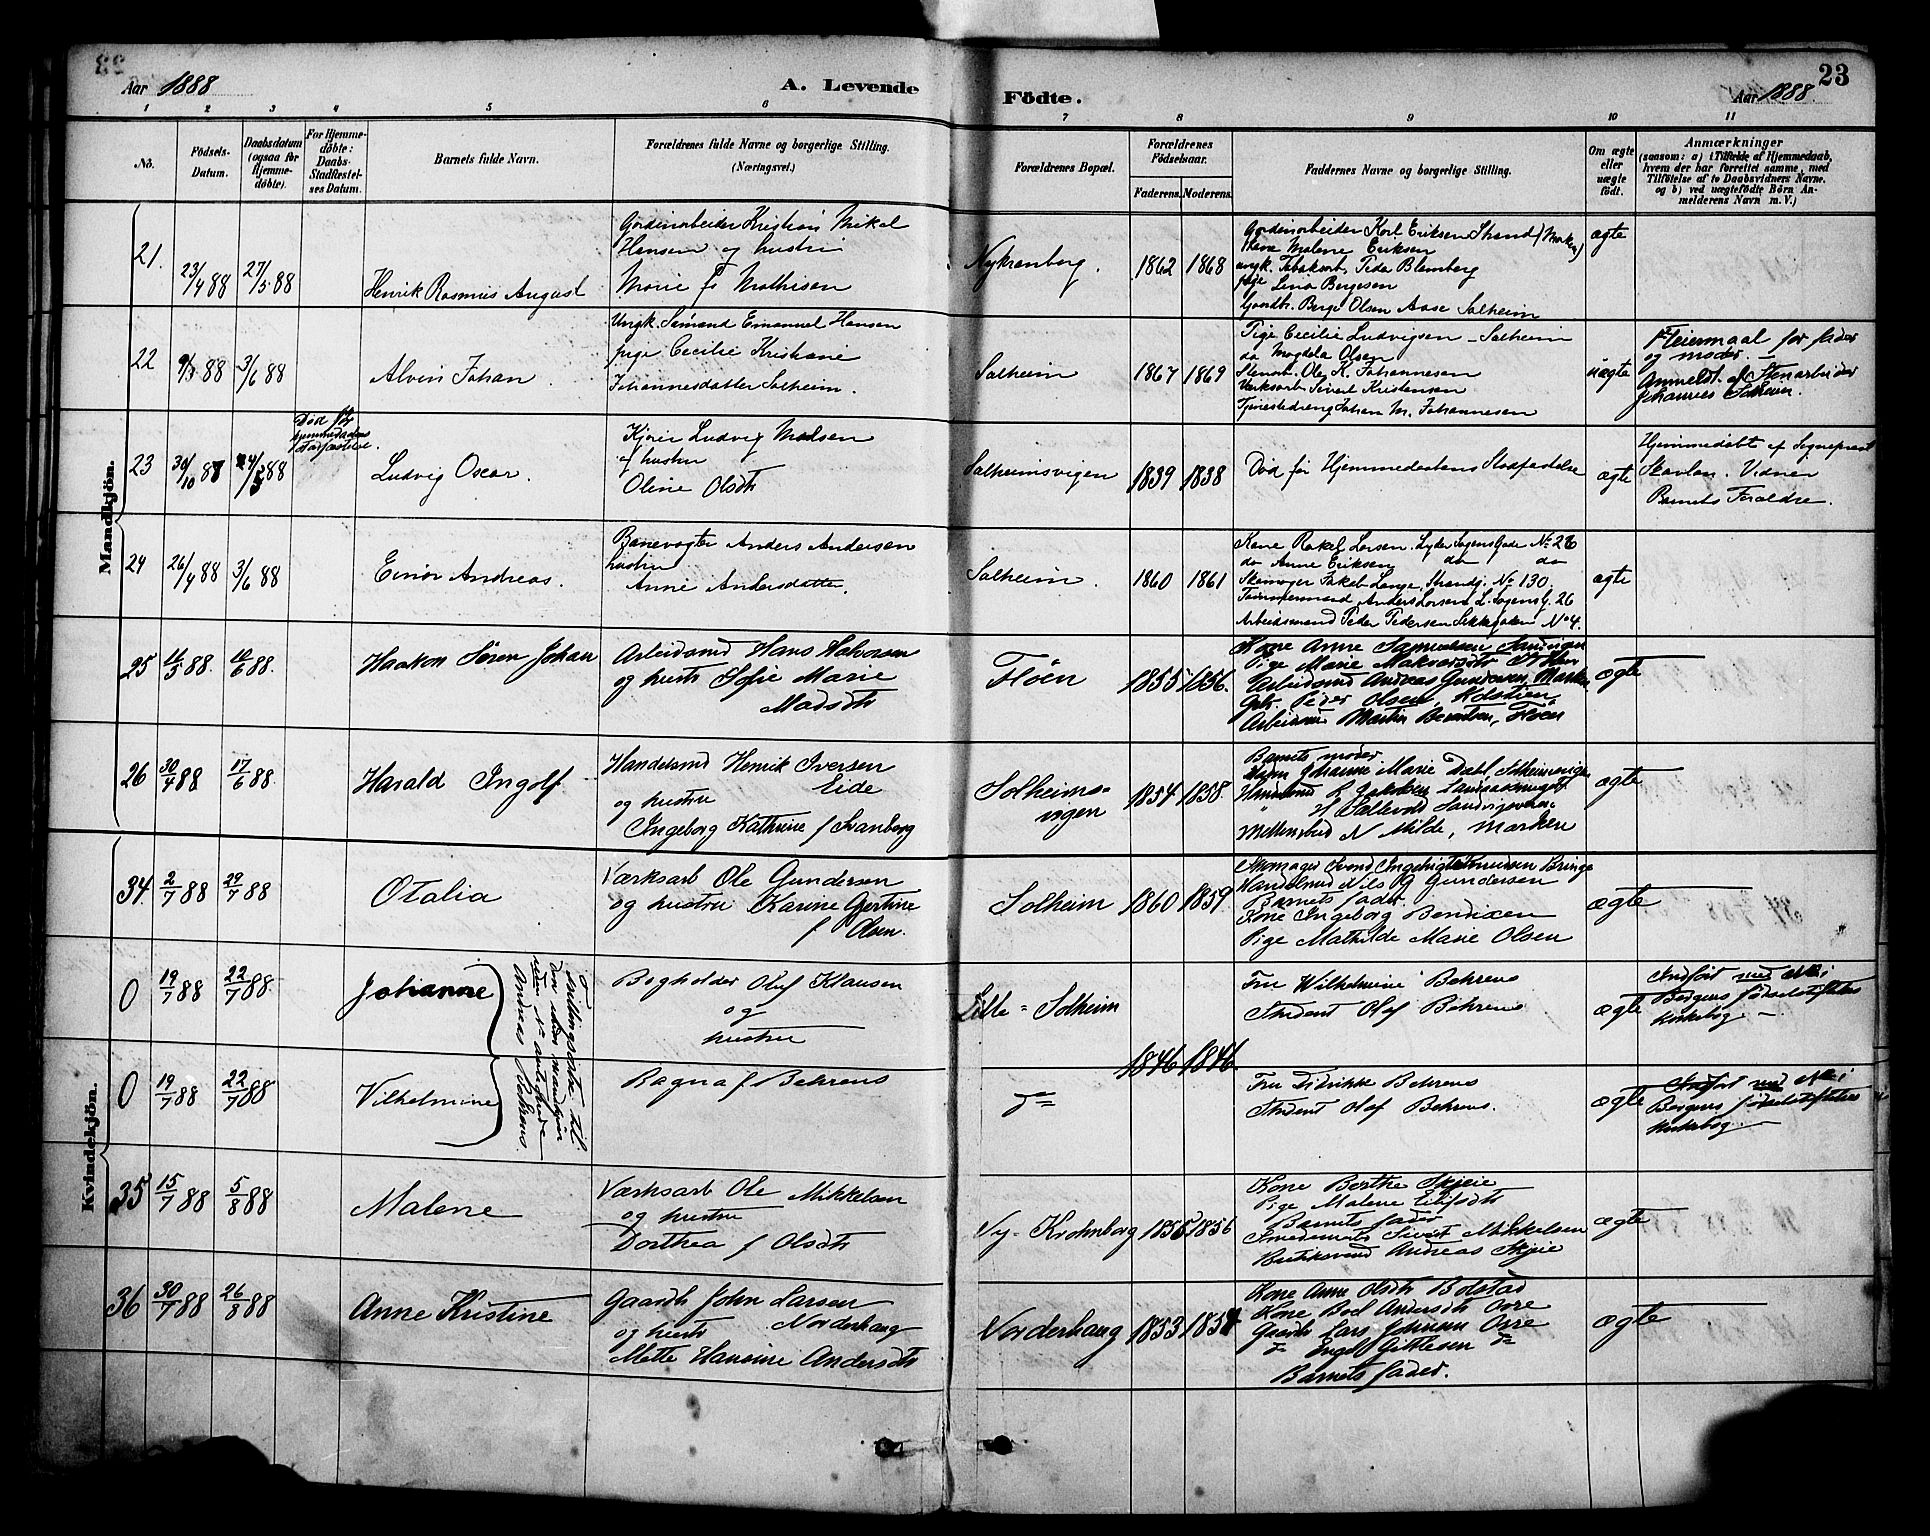 Aar 1888
A. Levende
Födte.
Aar 1888.
23
1 2 3 4 5 6 7 8 9 10 11
No.
Födsels-
Datum.
Daabsdatum
(ogsaa for
Hjemme-
döbte).
For Hjemme-
döbte:
Daabs-
Stadfæstel-
ses Datum.
Barnets fulde Navn.
Forældrenes fulde Navne og borgerlige Stilling.
(Næringsvei.)
Forældrenes Bopæl.
Forældrenes
Födselsaar.
Faderens. Moderens.
Faddernes Navne og borgerlige Stilling.
Om ægte
eller
uægte
födt.
Anmærkninger
(saasom: a) i Tilfælde af Hjemmedaab,
hvem der har forrettet samme, med
Tilföielse af to Daabsvidners Navne.
og b) ved uægtefödte Börn An-
melderens Navn m. V.)
Mandkjön.
21.
23/4 88
27/5 88
Henrik Rasmus August
Kristian Mikal
Hansen og hustru
Marie f. Mathisen
Nykronborg.
1862 1868
Karl Eriksen Strand (Marken)
Malene Eriksen
ungk. Tobaksarb. Peder Blomberg
pige Lina Børgesen
Gaardbr. Børge Olsen Aase Solheim
ægte
22
9/5 88
3/6 88
Alvin Johan
Ungk. Sømand Emanuel Hansen
pige Cecilie Kristiane
Johannesdatter Solheim.
Solheim
1867 1869
Pige Cecilie Ludvigsen - Solheim
do Magdela Olsen
Stenarb. Ole K. Johannesen
Værksarb. Sivert Kristensen
Tjenestedreng Johan M. Johannesen
uægte
1ste Leiermaal for fader
og moder -
Anmeldt af Stenarbeider
Johannes Solheim.
23
30/10 87
24/3 88
Død før
hjemmedaabens
stadfæstelse
Ludvig Oscar.
Kjører Ludvig Madsen
og hustru
Oline Olsdtr
Solheimsvigen
1839 1838
Død før Hjemmedaabens Stadfæstelse
ægte
Hjemmedøbt af Sognepræst
Skavlan. Vidner
Barnets Forældre.
24
26/4 88
3/6 88
Einar Andreas.
Banevogter Anders Andersen
hustru
Anne Andersdatter
Solheim.
1860 1861
Kone Rakel Larsen. Lyder Sagens Gade No 26
do Anne Eriksen do do
Skomager Jakob Lange, Strandg. No 130.
Tømmermand Anders Larsen L. Sagens G. 26
Arbeidsmand Peder Pedersen No 4.
ægte
25
11/5 88.
10/6 88.
Haakon Søren Johan
Arbeidsmd Hans Halvorsen
og hustr Sofie Marie
Madsdtr
Fløen
1855 1856.
Kone Anne Samuelsen, Sandvigen
Pige Marie
Arbeidsmd Andreas Gundersen, Marken
Gbr. Peder Olsen, Kolstien
Arbeidsmd Martin Berntsen, Fløen
ægte
26
30/4 88
17/6 88.
Harald Ingolf
Handelsmd Henrik Iversen
Eide
og hustru
Ingeborg Kathrine f Svanberg
Solheims-
vigen
1854 1858.
Barnets moder
Johanne Marie Dahl, Solheimsvigen
Handelsmd
Sandvigsveien
N Milde, Marken
ægte
Kvindekjön.
34.
2/7 88
29/7 88
Otalia
Værksarb Ole Gundersen
og hustru Karine Gjertine
f Olsen.
Solheim
1860 1859
Skomager Svend Ingebrigt Knudsen Bringe
Handelsmd Nils G Gundersen
Barnets fader
Kone Ingeborg Bendixen
Pige Mathilde Marie Olsen
ægte
0
19/7 88
22/7 88.
Johanne
Tvillingsøstre til
den ... mandkjøn
... No ... anførte
Andreas Behrens.
Bogholder Oluf Klausen
og
hustru
Lille = Solheim
1846 1846.
Fru Wilhelmine Behrens
Student Olaf Behrens
ægte
Indført med No i
Bergens fødselsstiftelses
kirkebog. -
0
19/7 88
22/7 88
Vilhelmine
Ragna f Behrens
do
Fru Didrikke Behrens
Student Olaf Behrens.
ægte
Indført med No i
Bergens fødselsstiftelses
kirkebog. -
35
15/7 88
5/8 88
Malene
Værksarb Ole Mikkelsen
og hustru
Dorthea f Olsdtr
Ny-Krohnborg
1855 1856
Kone Berthe Skjeie
Pige Malene
Barnets fader
Smedemstr Sivert Mikkelsen
Andreas Skjeie
ægte
36
30/7 88
26/8 88
Anne Kristine
Gaardbr John Larsen
Norderhaug
og hustr
Mette Hansine Andersdtr
Norderhaug
1853 1854
Kone Anne Olsdtr Bolstad
Kone Boel Andersdtr Øvre
Gaardbr Lars Johnsen Øvre
do Engel Gittlesen do
Barnets fader.
ægte